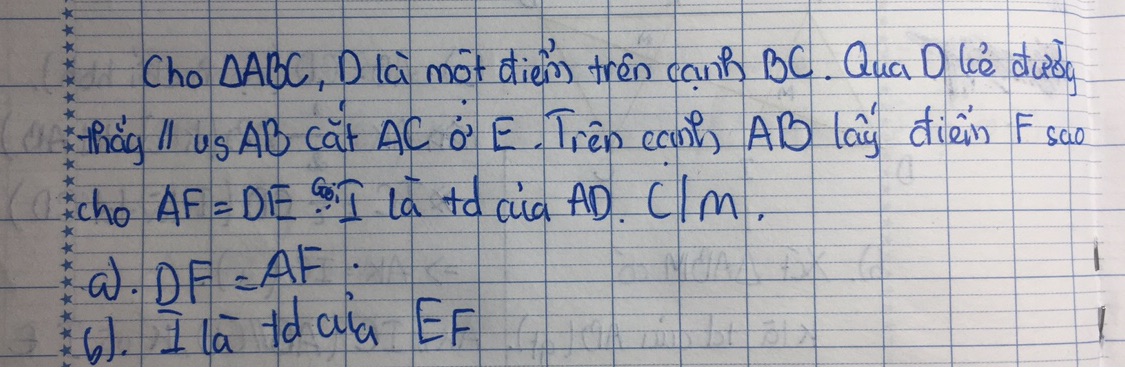 Cho ΔABC, D là một điểm trên cạnh BC. Qua D kẻ đường
thẳg // vs AB cắt AC ở E. Trên cạnh AB lấy điểm F sao
cho AF = DE. Gọi I là td của AD. C/m.
a). DF = AF.
b). I là td của EF